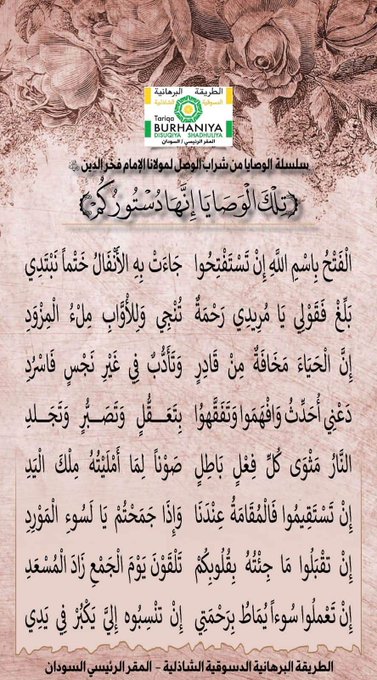 الطريقة البرهانية
الدسوقية الشاذلية
Tariqa
BURHANIYA
DISUQIYA SHADHULIYA
المقر الرئيسي / السودان
سلسلة الوصايا من شراب الوصل لمولانا الإمام فخر الدين
﴿تِلْكَ الْوَصَايَا إِنَّهَا دُسْتُورُكُمْ﴾
الْفَتْحُ بِاسْمِ اللَّهِ إِنْ تَسْتَفْتِحُوا جَاءَتْ بِهِ الْأَنْفَالُ خَتْماً نَبْتَدِي
بَلِّغْ فَقَوْلِي يَا مُرِيدِي رَحْمَةٌ تُنْجِي وَلِلْأَوَّابِ مِلْءُ الْمِزْوَدِ
إِنَّ الْحَيَاءَ مَخَافَةٌ مِنْ قَادِرٍ وَتَأَدُّبٌ فِي غَيْرِ نَجْسٍ فَاسْرُدِ
دَعْنِي أُحَدِّثُ وَافْهَمُوا وَتَفَقَّهُوا بِتَعَقُّلٍ وَتَصَبُّرٍ وَتَجَلُّدِ
النَّارُ مَثْوَى كُلِّ فِعْلٍ بَاطِلٍ صَوْناً لِمَا أَمْلَيْتُهُ مِلْكَ الْيَدِ
إِنْ تَسْتَقِيمُوا فَالْمُقَامَةُ عِنْدَنَا وَإِذَا جَمَحْتُمْ يَا لَسُوءِ الْمَوْرِدِ
إِنْ تَقْبَلُوا مَا جِئْتُهُ بِقُلُوبِكُمْ تَلْقَوْنَ يَوْمَ الْجَمْعِ زَادَ الْمُسْعَدِ
إِنْ تَعْمَلُوا سُوءاً يُمَاطُ بِرَحْمَتِي إِنْ تَنْسِبُوه إِلَيَّ يَكْبُرُ فِي يَدِي
الطريقة البرهانية الدسوقية الشاذلية - المقر الرئيسي السودان